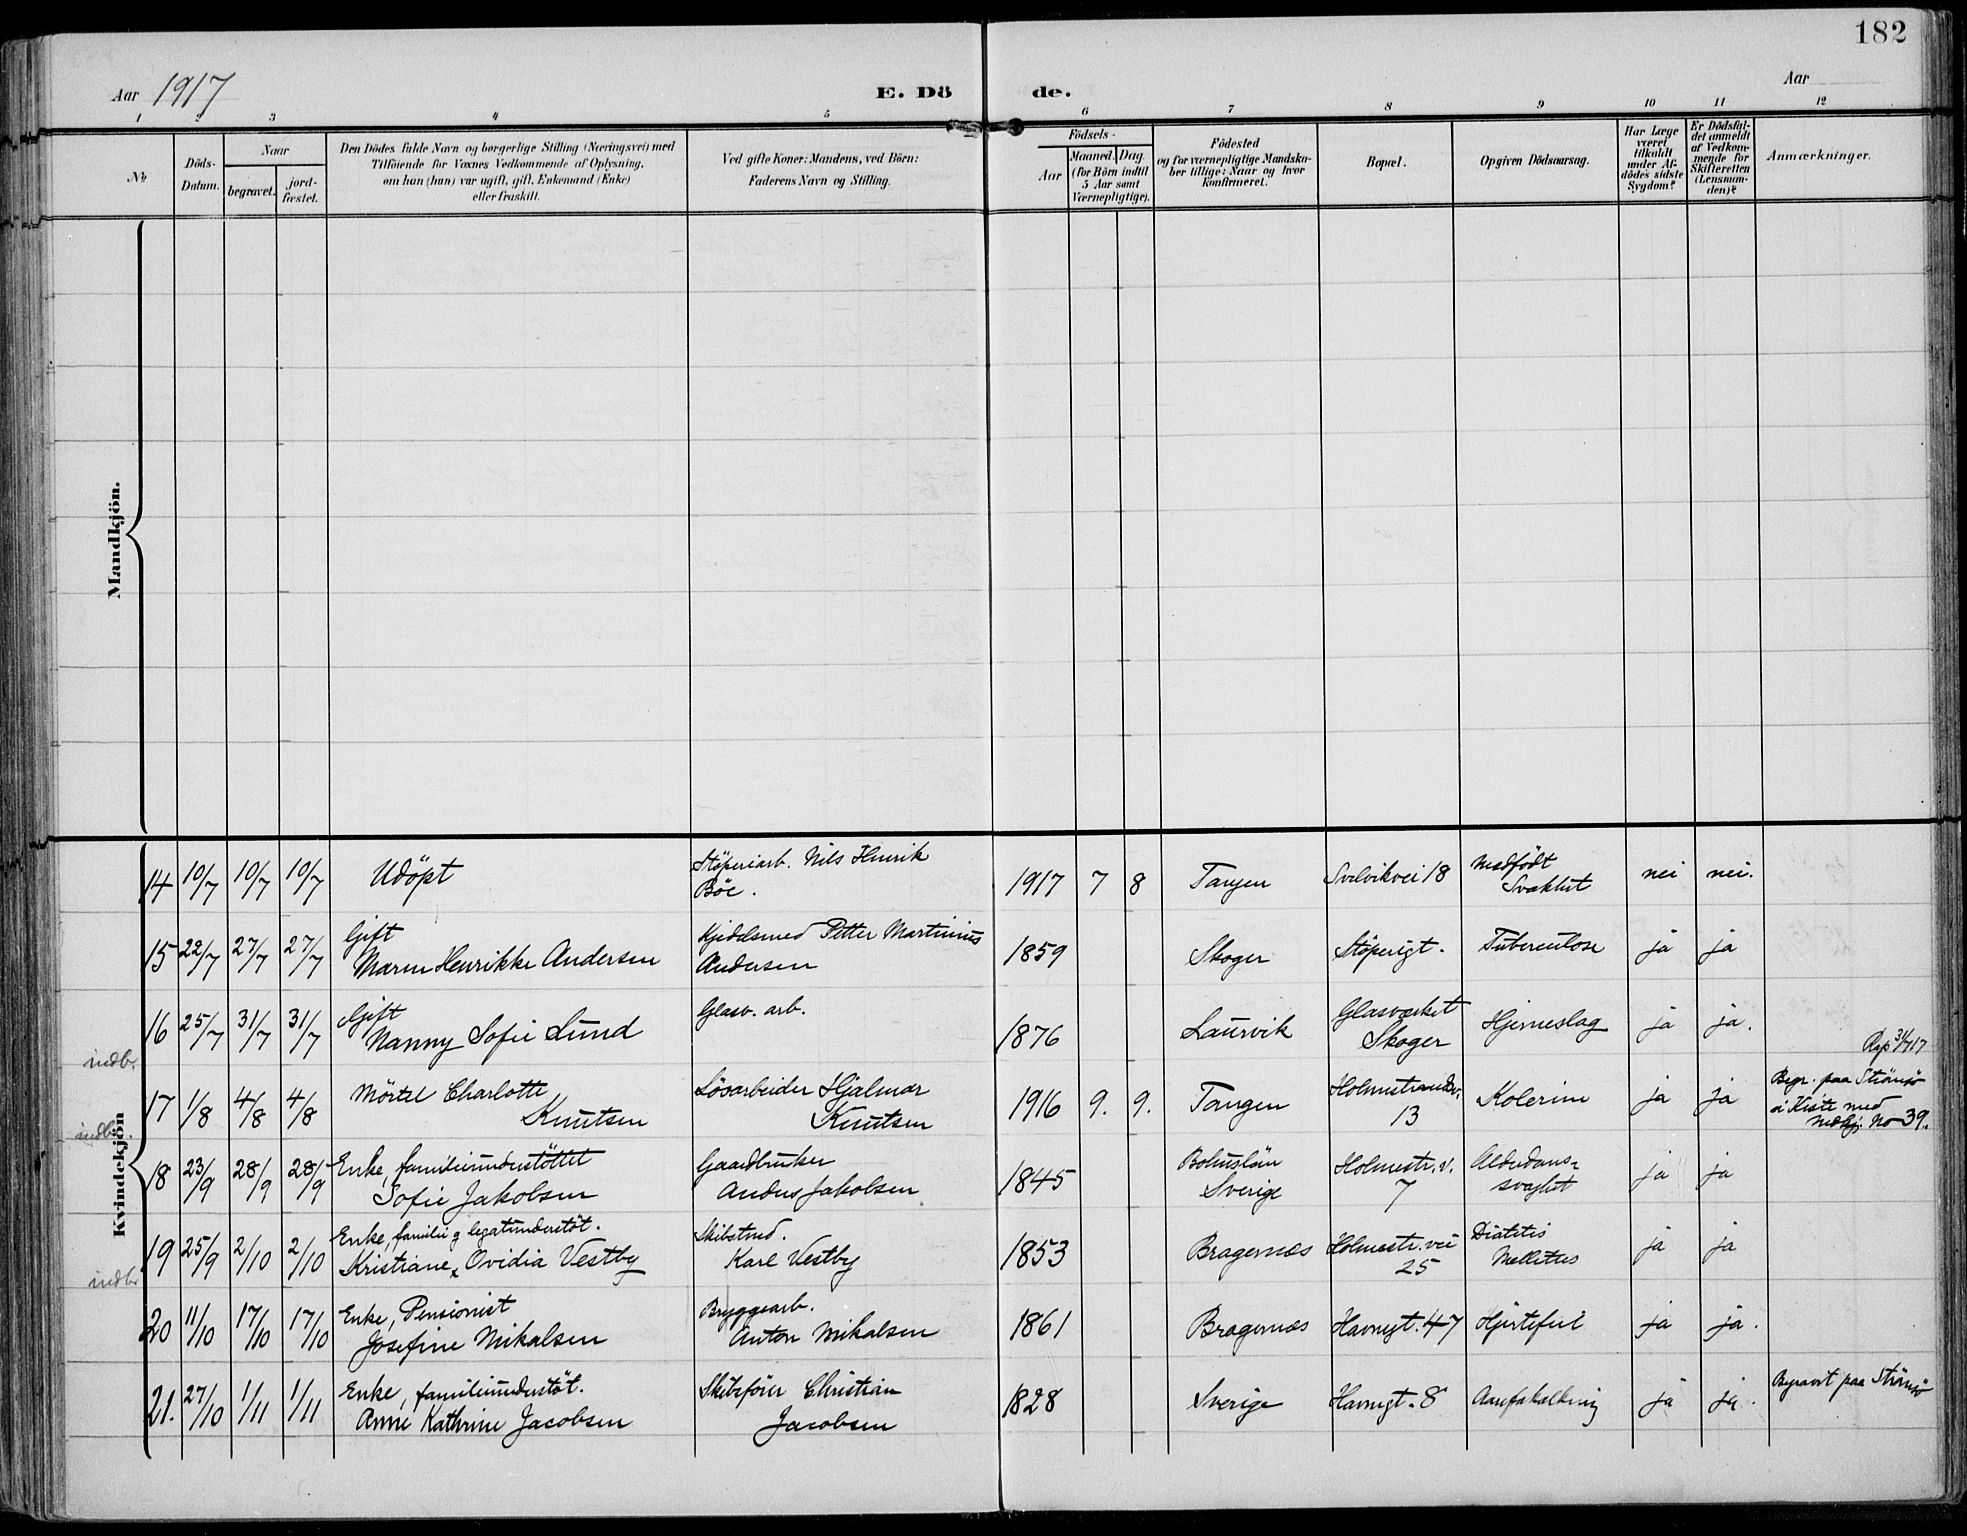 182
Aar 1917
E. Dö de.
Aar
1 2 3 4 5 6 7 8 9 10 11 12
№
Döds-
Datum.
Naar
begravet.
jord-
fæstet.
Den Dödes fulde Navn og borgerlige Stilling (Næringsvei) med
Tilföiende for Voxnes Vedkommende af Oplysning,
om han (hun) var ugift, gift, Enkemand (Enke)
eller fraskilt.
Ved gifte Koner: Mandens, ved Börn:
Faderens Navn og Stilling.
Födsels-
Aar
Maaned. Dag.
(for Börn indtil
5 Aar samt
Værnepligtige).
Födested
og for værnepligtige Mandska-
ber tillige: Naar og hvor
konfirmeret.
Bopæl.
Opgiven Dödsaarsag.
Har Læge
været
tilkaldt
under Af-
dödes sidste
Sygdom?
Er Dödsfal-
det anmeldt
af Vedkom-
mende for
Skifteretten
(Lensman-
den)?
Anmærkninger.
Mandkjön.
Kvindekjön
14 10/7 10/7 10/7 Udöpt
Stöperiarb. Nils Henrik
Böe.
1917 7 8 Tangen Svelvikvei 18
Medfödt
Svakhet
nei nei.
15 22/7 27/7 27/7 Gift
Maren Henrikke Andersen
Kjedelsmed Petter Martinius
Andersen
1859 Skoger Stöperigt. Tuberculose ja ja
16 25/7 31/7 31/7 Gift
Nanny Sofie Lund
Glasv. arb.
1876 Laurvik
Glasværket
Skoger
Hjerneslag ja ja.
indb.
17 1/8 4/8 4/8 Mörtel Charlotte
Knutsen
Lösarbeider Hjalmar
Knutsen
1916 9. 9. Tangen
Holmstrandsv.
13
Kolerine ja ja
Begr. paa Strömsö
i Kiste med
No 39.
indb.
18 23/9 28/9 28/9 Enke, familieunderstöttet
Sofie Jakobsen
Gaardbruker
Anders Jakobsen
1845
Bohuslän
Sverige
Holmestr. v.
7
Alderdoms-
svaghet
ja ja
19 25/9 2/10 2/10 Enke, familie g legatunderstöt.
Kristiane Ovidia Vestby
Skibstmd.
Karl Vestby
1853 Bragernæs
Holmestr. vei
25
Diabetis
Mellitus
ja ja
indb.
20 11/10 17/10 17/10 Enke, Pensionist
Josefine Mikalsen
Bryggearb.
Anton Mikalsen
1861 Bragernæs Havnegt. 47 Hjertefeil ja ja.
21. 27/10 1/11 1/11 Enke, familieunderstöt.
Anne Kathrine Jacobsen
Skibsförer Christian
Jacobsen
1828 Sverige Havnegt. 8 Aareforkalkning ja ja.
Begravet paa Strömsö